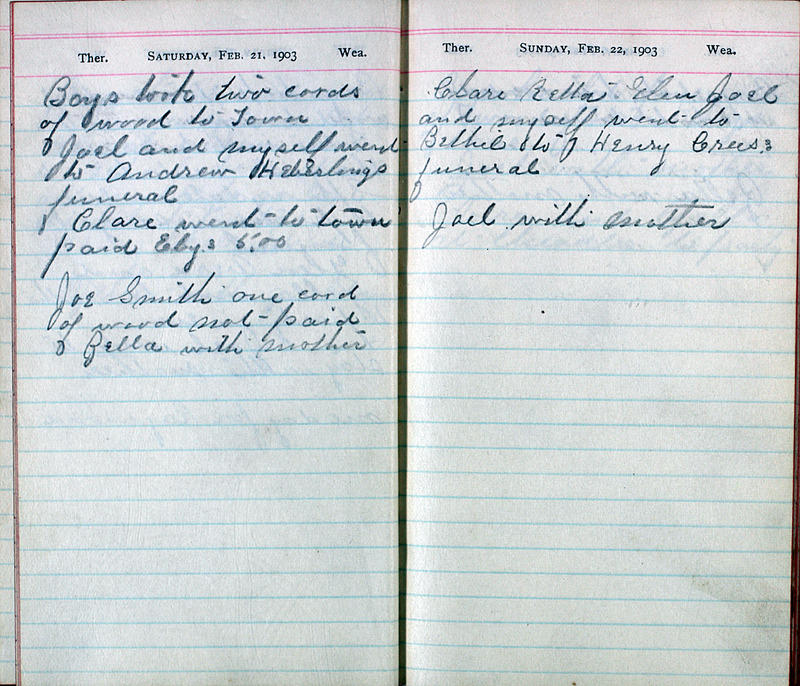 Ther. SATURDAY, FEB. 21, 1903 Wea.
Boys took two cords
of wood to Town
Joel and myself went
to Andrew Heberlings
funeral
Clare went to town
paid Ebys 5.00
Joe Smith one cord
of wood not paid
Bella with mother
Ther. SUNDAY, FEB. 22, 1903 Wea.
Clare Retta Elen Joel
and myself went to
to Henry
funeral
Joel with mother